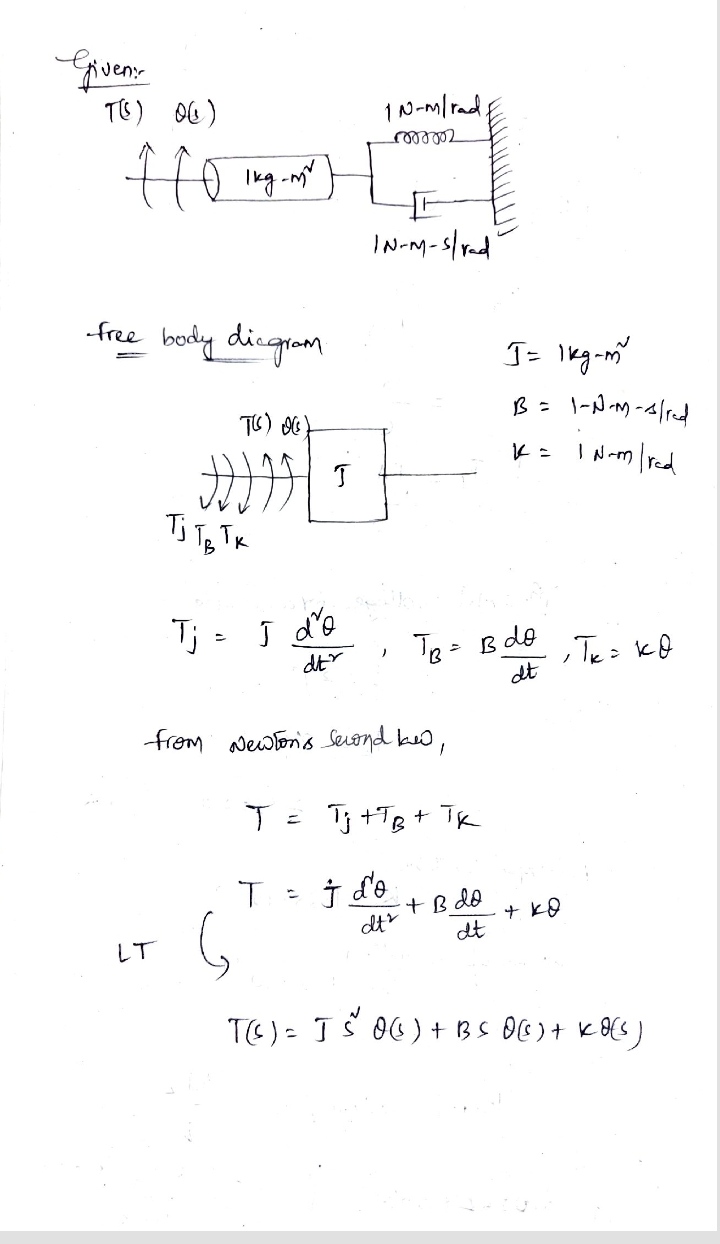 Given:-
T(s) θ(s) 1 N-m/rad
1kg-m²
1 N-m-s/rad
free body diagram
J = 1kg-m²
B = 1-N-m-s/rad
T(s) θ(s)
K = 1 N-m/rad
J
Tj TB TK
Tj = J d²θ/dt² , TB = B dθ/dt , TK = Kθ
from Newton's Second law,
T = Tj + TB + TK
T = J d²θ/dt² + B dθ/dt + Kθ
LT
T(s) = J s² θ(s) + B s θ(s) + K θ(s)